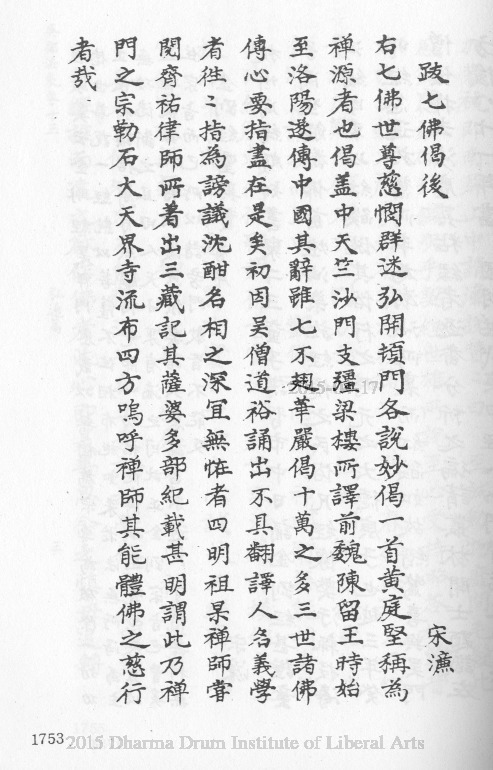 跋七佛偈後
宋濂
右七佛世尊慈憫群迷弘開頓門各說妙偈一首黃庭堅稱為
禪源者也偈盖中天竺沙門支彊梁樓所譯前魏陳留王時始
至洛陽遂傳中國其辭雖七不翅華嚴偈十萬之多三世諸佛
傳心要指盡在是矣初因吴僧道裕誦出不具翻譯人名義學
者徃〻指為謗議沈酣名相之深冝無怪者四明祖杲禪師甞
閱齊祐律師所著出三藏記其薩婆多部紀載甚明謂此乃禪
門之宗勒石大天界寺流布四方嗚呼禪師其能體佛之慈行
者哉
1753
2015 Dharma Drum Institute of Liberal Arts